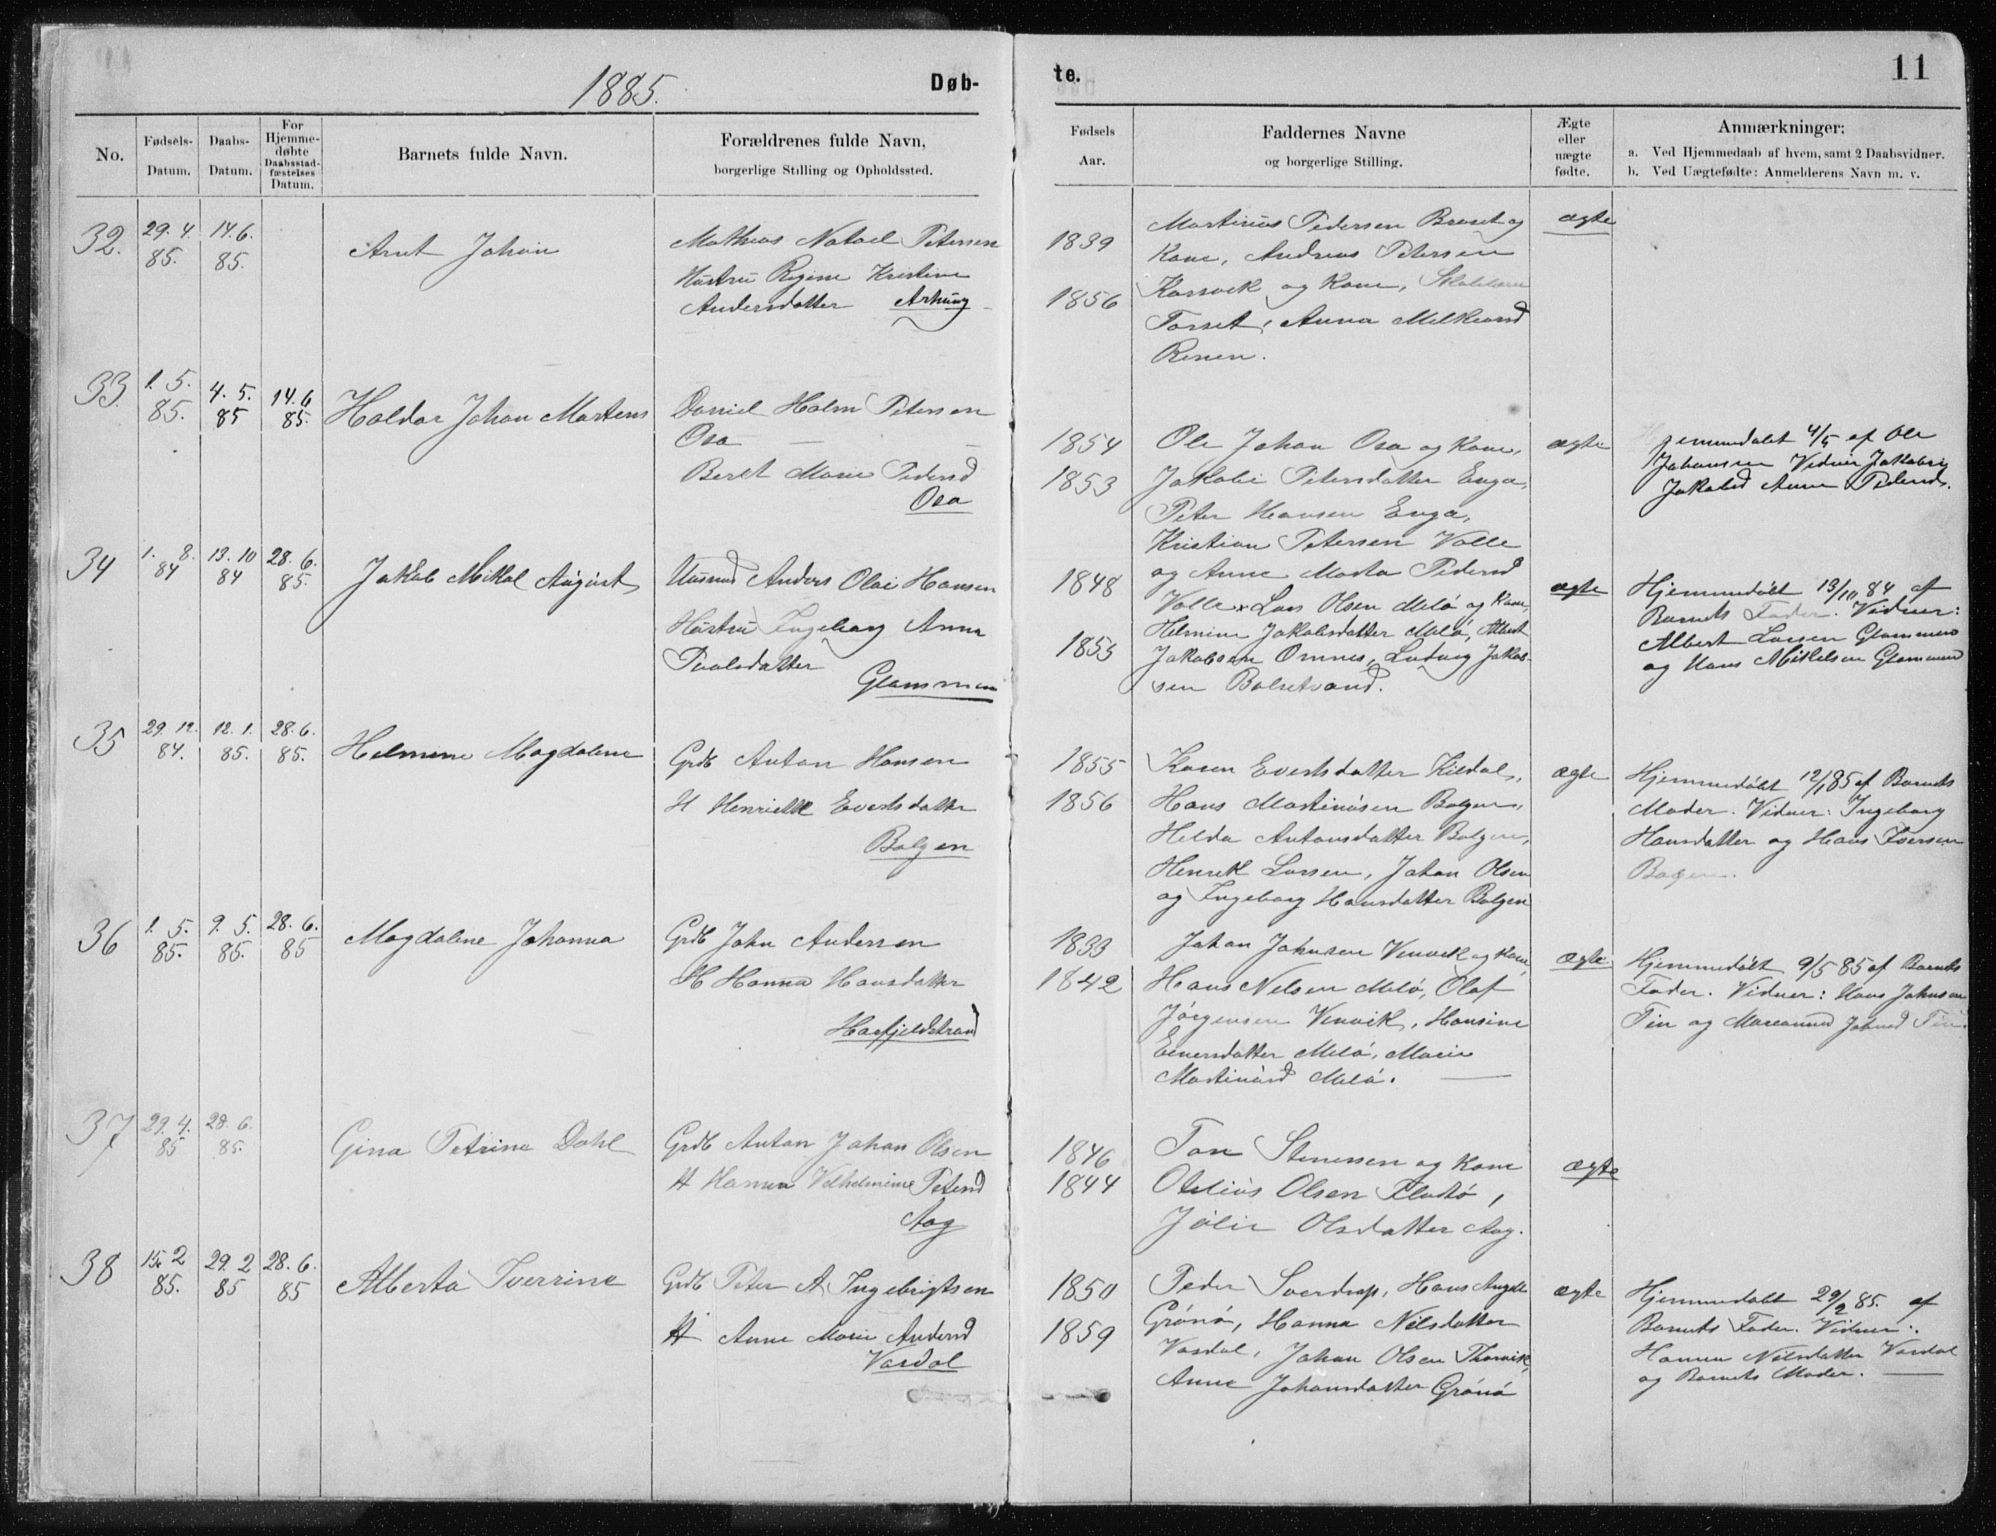 1885.
Døb-
No.
Fødsels-
Datum.
Daabs-
Datum.
For
Hjemme-
døbte
Daabsstad-
fæstelses
Datum.
Barnets fulde Navn.
Forældrenes fulde Navn,
borgerlige Stilling og Opholdssted.
32.
29. 4.
85.
14. 6.
85.
Arnt Johan
Mathias Petersen
Hustru Regine Kristine
Andersdatter
33.
1. 5.
85.
4. 5.
85
14. 6
85.
Haldor Johan Martens
Daniel Holm Petersen
Osa
Beret Marie Pedersd
Osa
34
1. 8.
84
13. 10
84
28. 6.
85.
Jakob Mikal August
Anders Olai Hansen
Hustru Ingeborg Anna
Paalsdatter
Glammen
35
29. 12.
84.
12. 1.
85.
28. 6.
85.
Helmine Magdalene
Grdb Anton Hansen
H Henriette Evertsdatter
Bolgen
36
1. 5.
85.
9. 5.
85.
28. 6.
85
Magdalene Johanna
Grdb John Andersen
H Hanna Hansdatter
Havfjeldstrand
37
29. 4.
85
28. 6.
85.
Gina Petrine Dahl
Grdb Anton Johan Olsen
H Hanna Vilhelmine Petersd
Aag
38
15 2
85.
29. 2
85
28. 6.
85
Alberta Iverrine
Grdb Peter A Ingebrigtsen
H Anne Marie Andersd
Vasdal
te.
11
Fødsels
Aar.
Faddernes Navne
og borgerlige Stilling.
Ægte
eller
uægte
fødte.
Anmærkninger:
a. Ved Hjemmedaab af hvem, samt 2 Daabsvidner.
b. Ved Uægtefødte: Anmelderens Navn m. v.
1839
1856
Martinus Pedersen Breset og
Kone, Andreas Petersen
Korsvik og Kone,
Torset, Anna
Renen.
ægte
1854
1853
Ole Johan Osa og Kone,
Jakobe Petersdatter Enga,
Peter Hansen Enga,
Kristian Petersen Valle
og Anne Marta Pedersd
Valle
ægte
Hjemmedøbt 4/5 af Ole
Johansen Vidner
Jakobsd Anne Pedersd.
1848
1855
x Lars Olsen Melø og Kone,
Helmine Jakobsdatter Melø, Albert
Jakobsen Omnes, Ludvig Jakob-
sen Bolsetvand.
ægte
Hjemmedøbt 13/10 84 af
Barnets Fader. Vidner:
Albert Larsen Glammen
og Hans Mikkelsen Glammen
1855
1856
Karen Evertsdatter Kildal,
Hans Martinusen Bolgen,
Helda Antonsdatter Bolgen,
Henrik Larsen, Johan Olsen
og Ingeborg Hansdatter Bolgen
ægte
Hjemmedøbt 12/1 85 af Barnets
Moder. Vidner: Ingeborg
Hansdatter og Hans Iversen
Bolgen.
1833
1842
Johan Johnsen Venvik og Kone,
Hans Nelsen Melø, Olaf
Jørgensen Venvik, Hansine
Einersdatter Melø, Marie
Martinusd Melø.
ægte
Hjemmedøbt 9/5 85 af Barnets
Fader. Vidner: Hans Johnsen
Tin og Johnsd Tin.
1846
1844
Ton Stenersen og Kone
Otelius Olsen Flatø,
Julie Olsdatter Aag.
ægte
1850
1859
Peder Sverdrup, Hans Angell
Grønø, Hanna Nilsdatter
Vasdal, Johan Olsen Thorvik,
Anne Johansdatter Grønø
ægte
Hjemmedøbt 29/2 85. af
Barnets Fader. Vidner:
Hanna Nilsdatter Vasdal
og Barnets Moder.